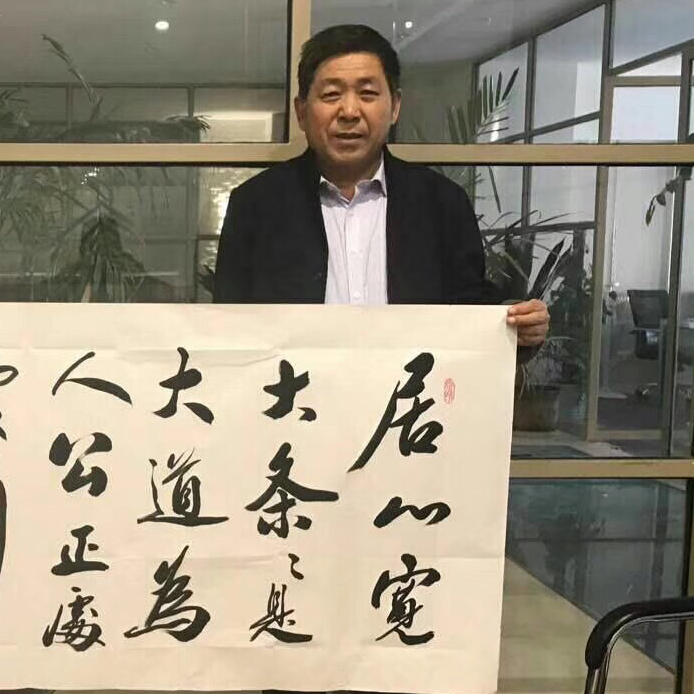 居心寬
大条〻是
大道為
人公正處